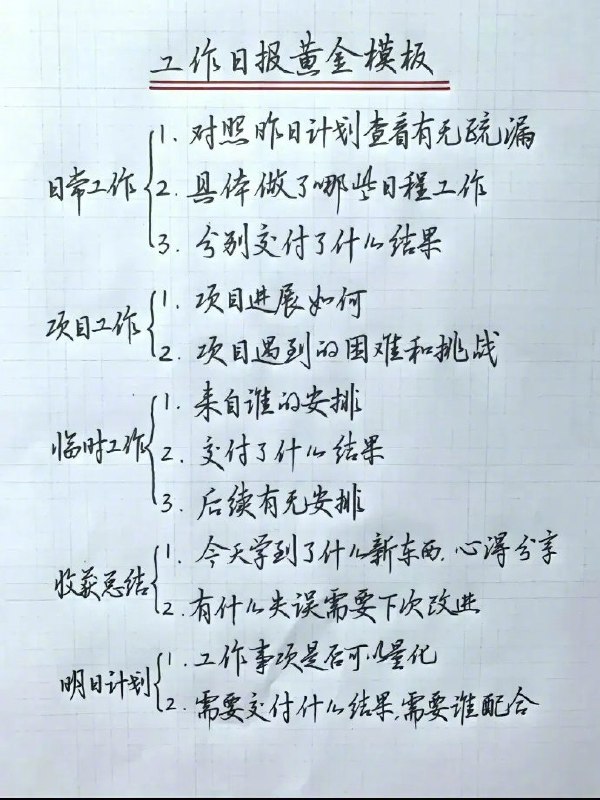 工作日报黄金模板
日常工作
1. 对照昨日计划查看有无疏漏
2. 具体做了哪些日程工作
3. 分别交付了什么结果
项目工作
1. 项目进展如何
2. 项目遇到的困难和挑战
临时工作
1. 来自谁的安排
2. 交付了什么结果
3. 后续有无安排
收获总结
1. 今天学到了什么新东西.心得分享
2. 有什么失误需要下次改进
明日计划
1. 工作事项是否可以量化
2. 需要交付什么结果,需要谁配合